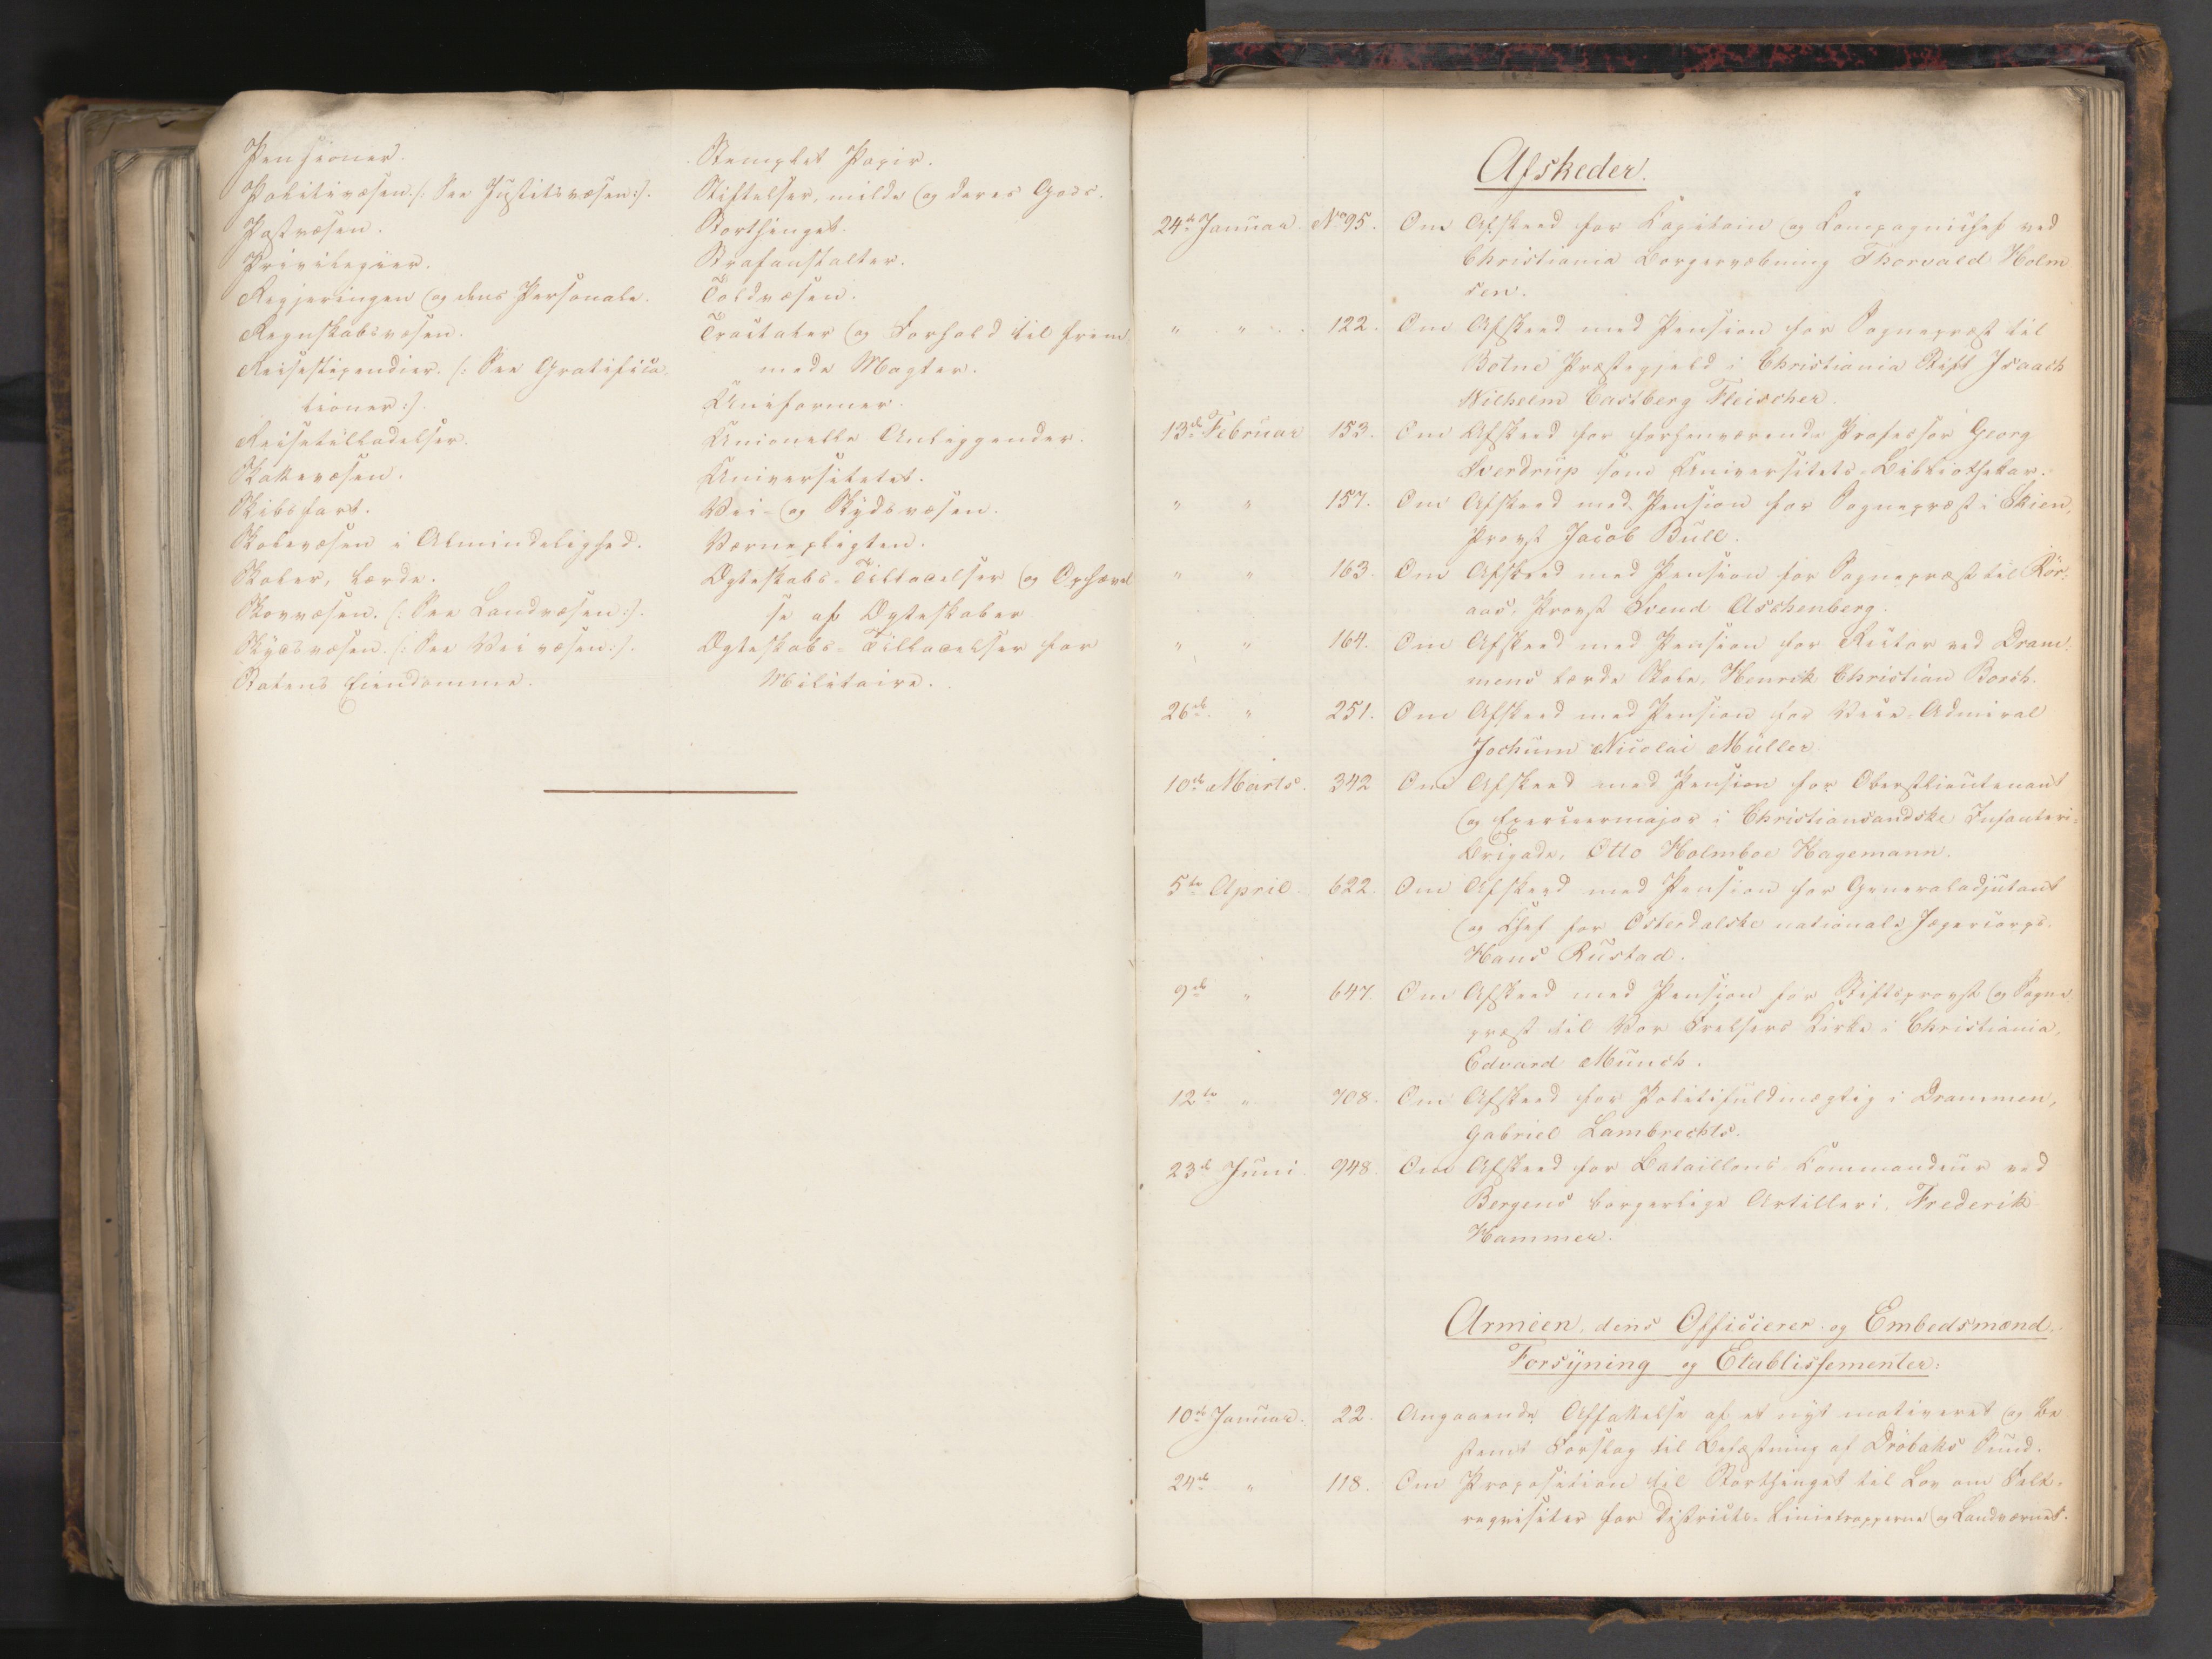 Pensioner.
Politivæsen. /: See Justitsvæsen :/.
Postvæsen.
Privilegier.
Regjeringen og dens Personale.
Regnskabsvæsen.
Reisestipendier. /: See Gratifica-
tioner :/.
Reisetilladelser.
Skattevæsen.
Skibsfart.
Skolevæsen i Almindelighed.
Skoler, lærde.
Skovvæsen. /: See Landvæsen :/.
Skydsvæsen. /: See Veivæsen :/.
Statens Eiendomme.
Stemplet Papir.
Stiftelser, milde og deres Gods.
Storthinget.
Strafanstalter.
Toldvæsen.
Tractater og Forhold til frem
mede Magter.
Uniformer.
Unionelle Anliggender.
Universitetet.
Vei- og Skydsvæsen.
Værnepligten.
Ægteskabs-Tilladelser og Ophævel
se af Ægteskaber
Ægteskabs-Tilladelser for
Militaire.
Afskeder.
24de Januar. No 95. Om Afskeed for Kapitain og Compagnichef ved
Christiania Borgervæbning Thorvald Holm
sen.
" " 122. Om Afskeed med Pension for Sognepræst til
Botne Præstegjeld i Christiania Stift Isaach
Wilhelm Castberg Fleischer.
13de Februar 153. Om Afskeed for forhenværende Professor Georg
Sverdrup som Universitets-Bibliothekar.
" " 157. Om Afskeed med Pension for Sognepræst i Skien,
Provst Jacob Bull.
" " 163. Om Afskeed med Pension for Sognepræst til Rör-
aas, Provst Svend Aschenberg.
" " 164. Om Afskeed med Pension for Rector ved Dram-
mens lærde Skole, Henrik Christian Borch.
26de " 251. Om Afskeed med Pension for Vice-Admiral
Jochum Nicolai Müller.
10de Marts. 342 Om Afskeed med Pension for Oberstlieutenant
og Exerceermajor i Christiansandske Infanteri-
Brigade, Otto Holmboe Hagemann.
5te April. 622. Om Afskeed med Pension for Generaladjutant
og Chef for Österdalske nationale Jægercorps,
Hans Rustad.
9de " 647. Om Afskeed med Pension for Stiftsprovst og Sogne
præst til Vor Frelsers Kirke i Christiania,
Edvard Munch.
12te " 708. Om Afskeed for Politifuldmægtig i Drammen,
Gabriel Lambrechts.
23de Juni. 948. Om Afskeed for Bataillons-Commandeur ved
Bergens borgerlige Artilleri, Frederik
Hammer.
Armeen, dens Officierer og Embedsmænd,
Forsÿning og Etablissementer:
10de Januar. 22. Angaaende Affattelse af et nyt motiveret og be
stemt Forslag til Befæstning af Dröbaks Sund.
24de " 118. Om Proposition til Storthinget til Lov om Felt-
requisiter for Districts-Linietropperne og Landværnet.